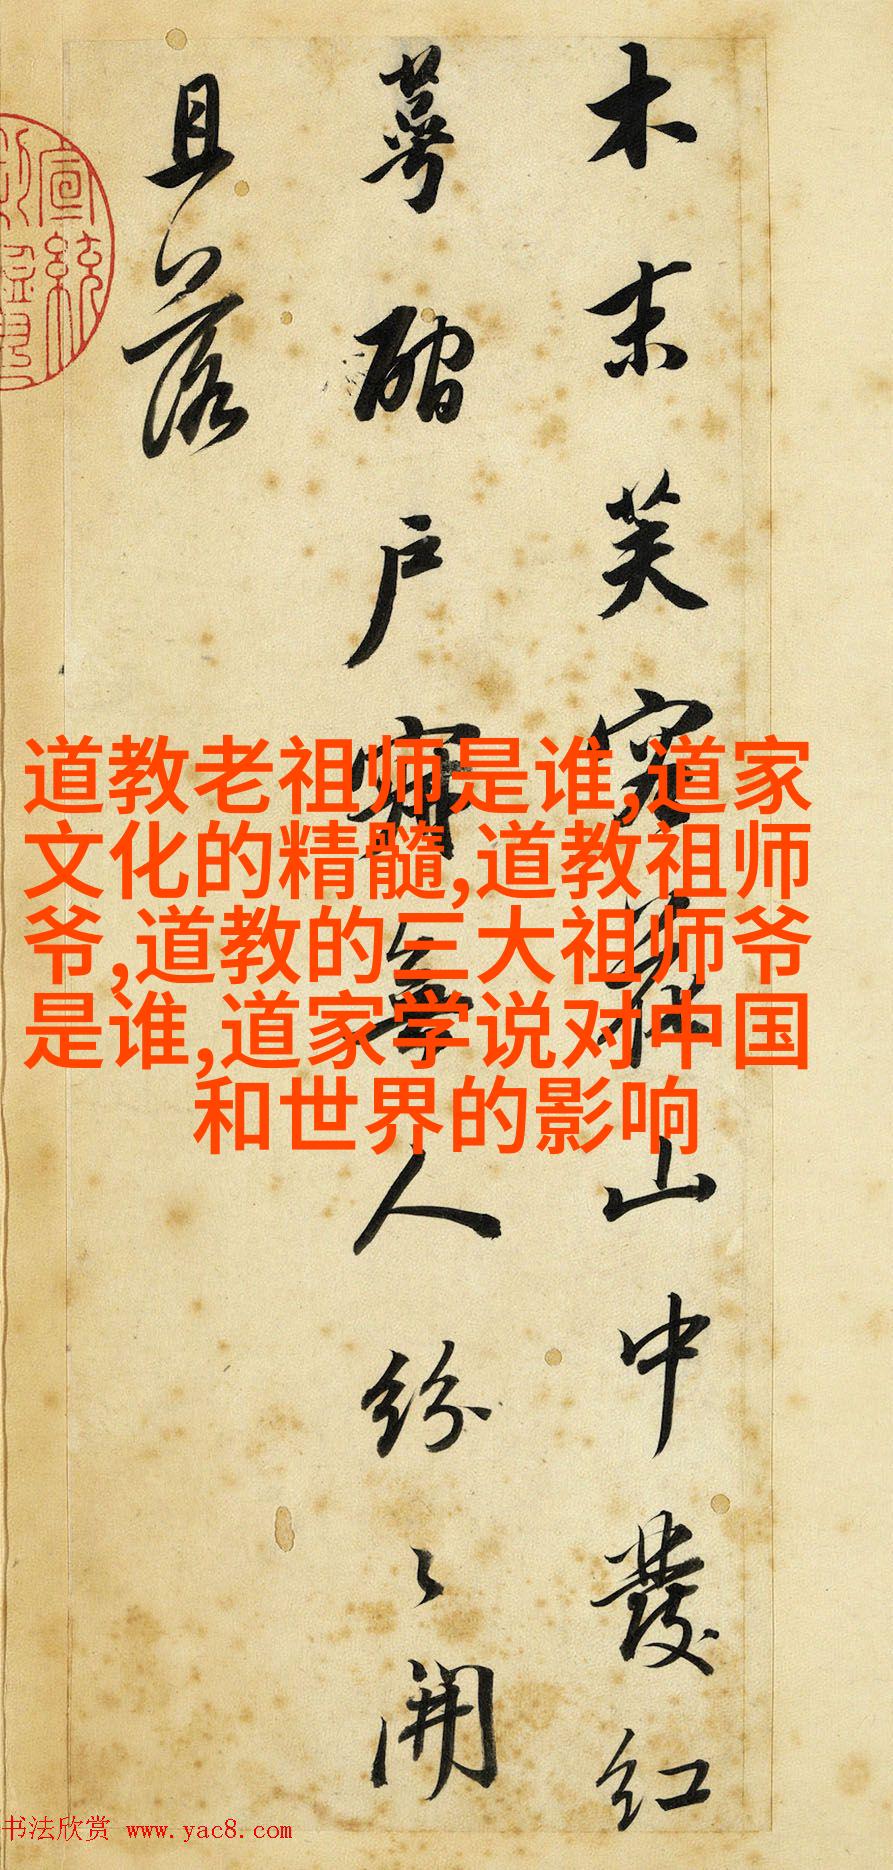 木末芙容花山中發紅
萼磵戶寂無人紛〻開
且落
宣統
道教老祖师是谁,道家
文化的精髓,道教祖师
爷,道教的三大祖师爷
是谁,道家学说对中国
和世界的影响
书法欣赏 www.yac8.com